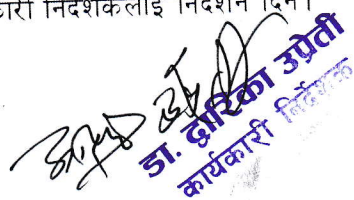 कारी निर्देशकलाई निर्देशन दिने।
डा. द्वारिका उप्रेती
कार्यकारी निर्देशक